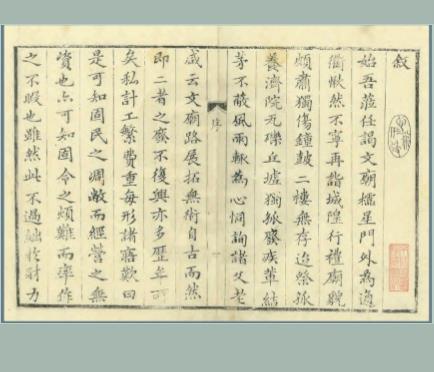 敘
始吾蒞任謁文廟櫺星門外為通
衢愀然不寧再詣城隍行禮廟貌
頗肅獨傷鐘鼓二樓無存迨祭孤
養濟院瓦礫丘墟獨孤廢疾輩結
茅不蔽風雨輒為心惻詢諸父老
序
咸云文廟路展拓無術自古而然
即二者之廢不復興亦多歷年所
矣私計工繁費重每形諸寤歎曰
是可知固民之凋敝而經營之無
資也亦可知固令之難而率作
之不暇也雖然此不過絀於財力